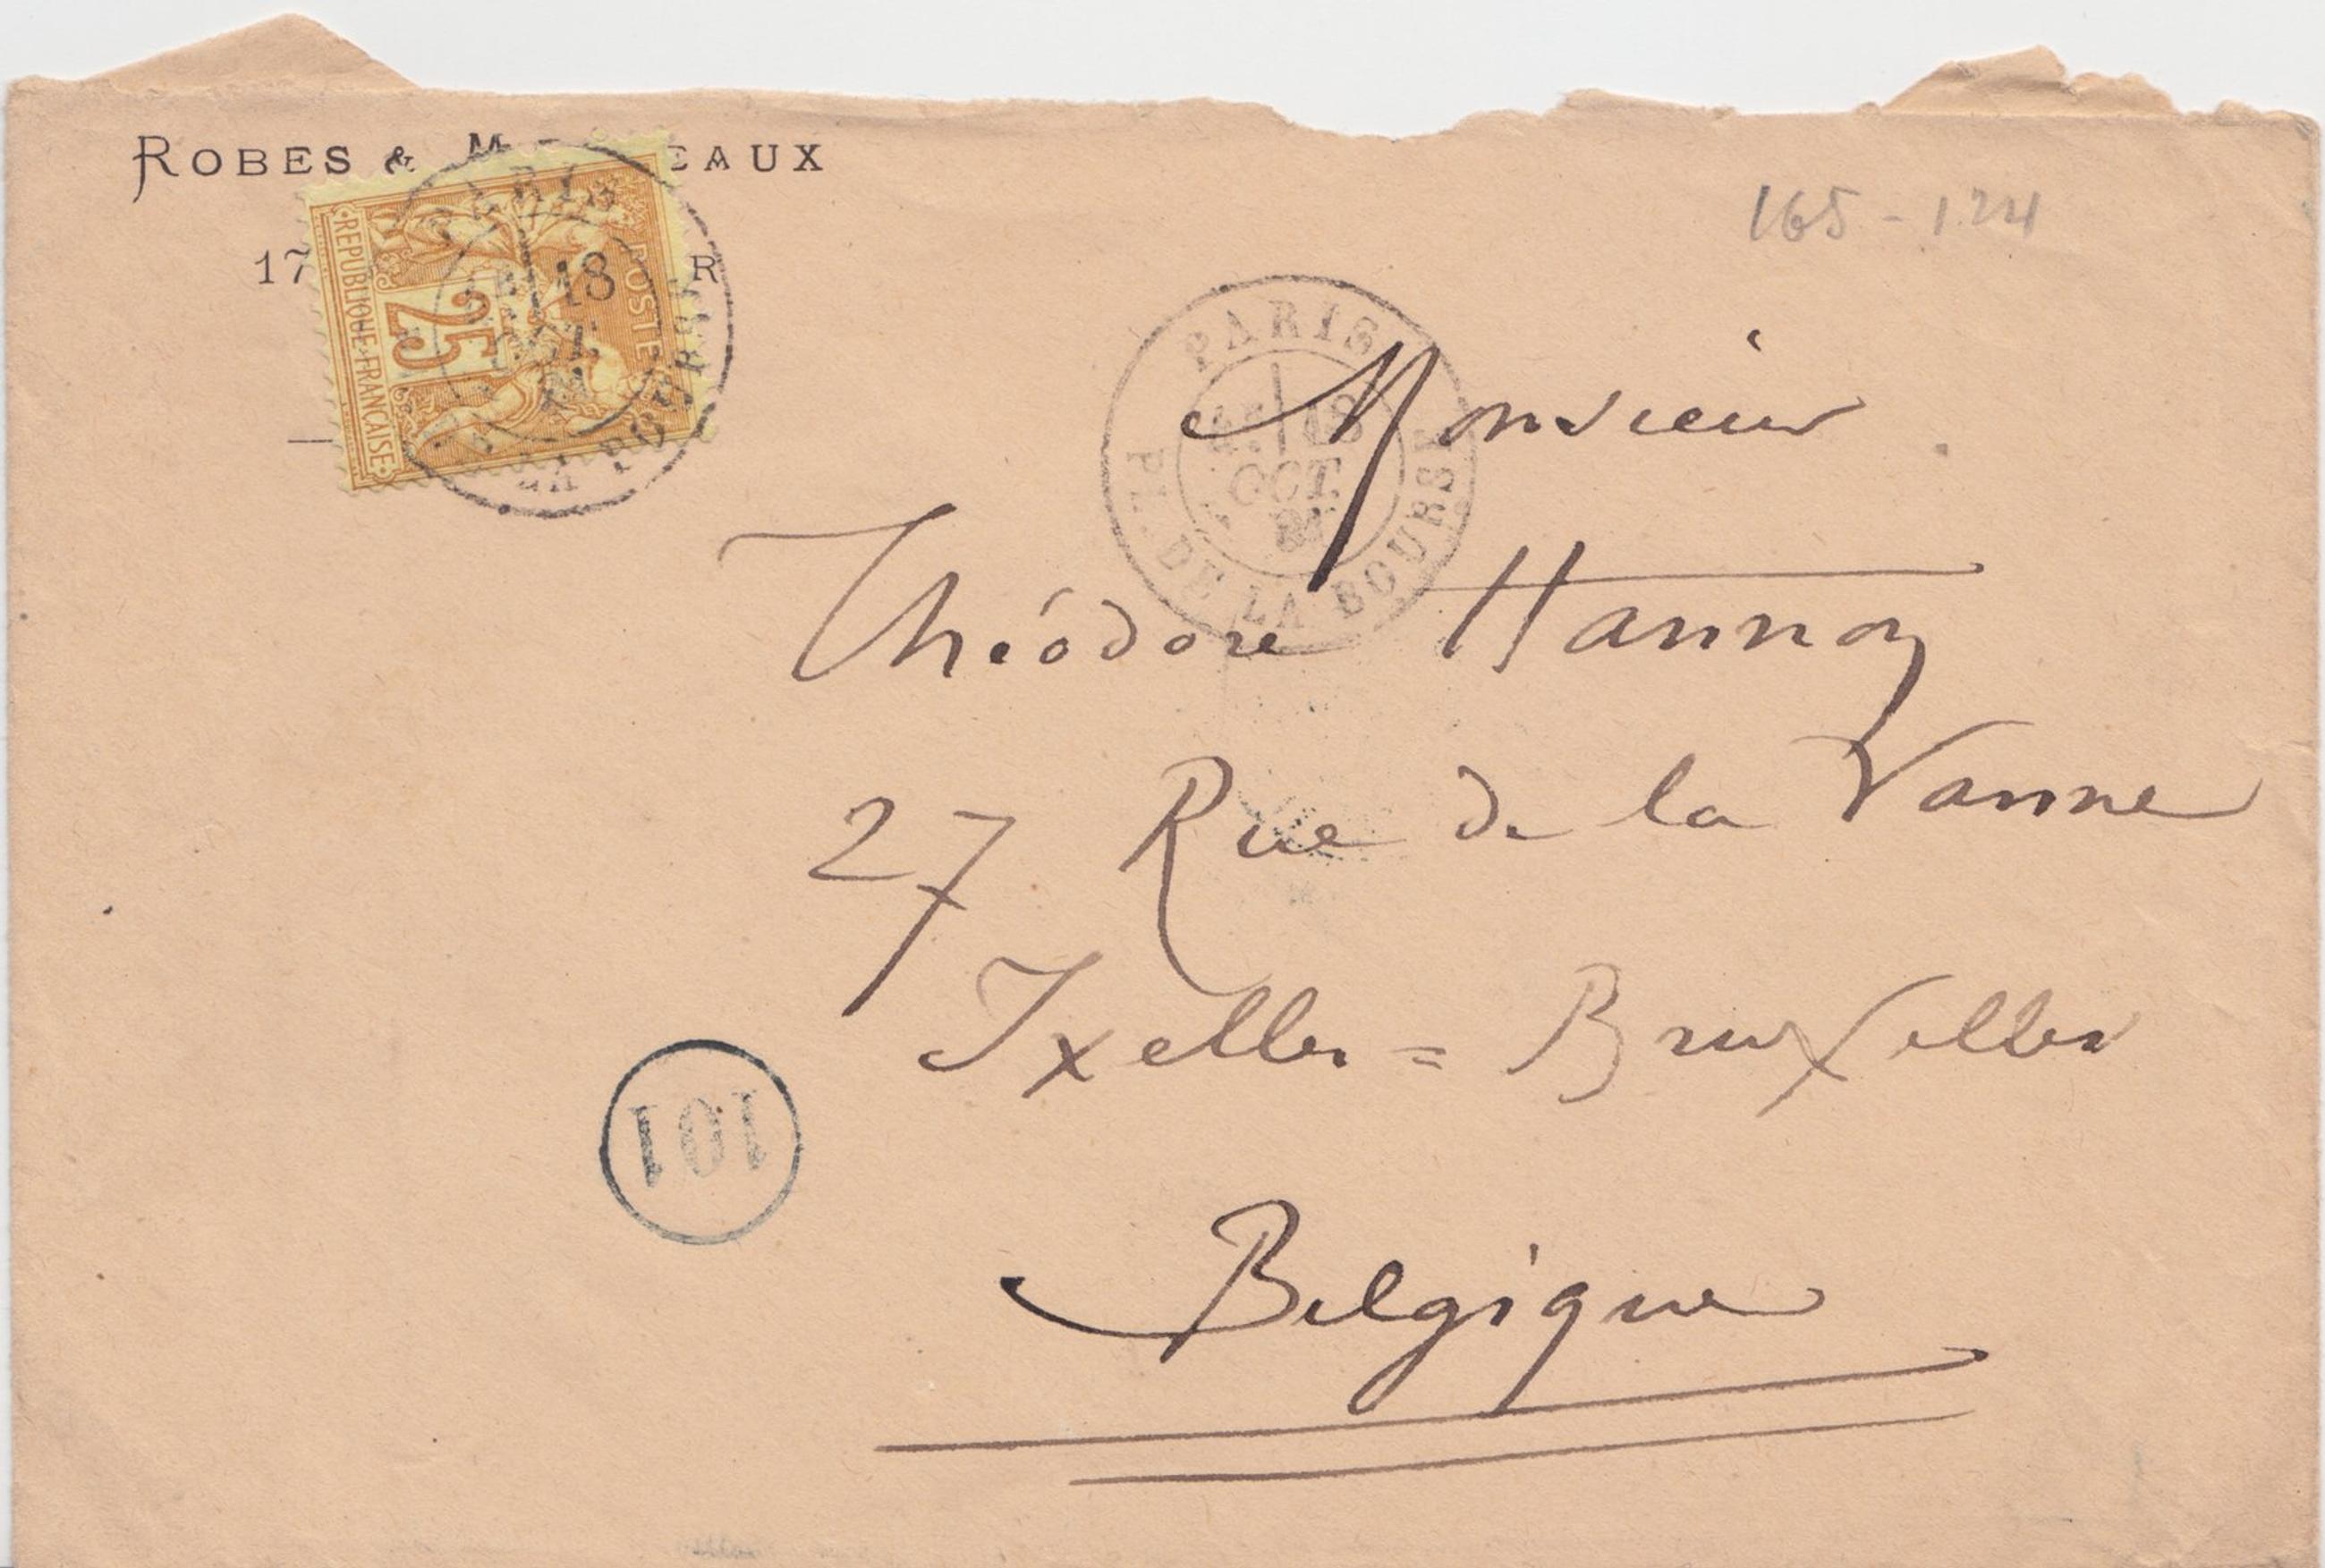 ROBES & M EAUX
17 R
165-124
REPUBLIQUE FRANÇAISE
25
POSTES
18
OCT.
PARIS
18
OCT.
84
PL. DE LA BOURSE
Monsieur
Théodore Hannon
27 Rue de la Vanne
Ixelles = Bruxelles
101
Belgique